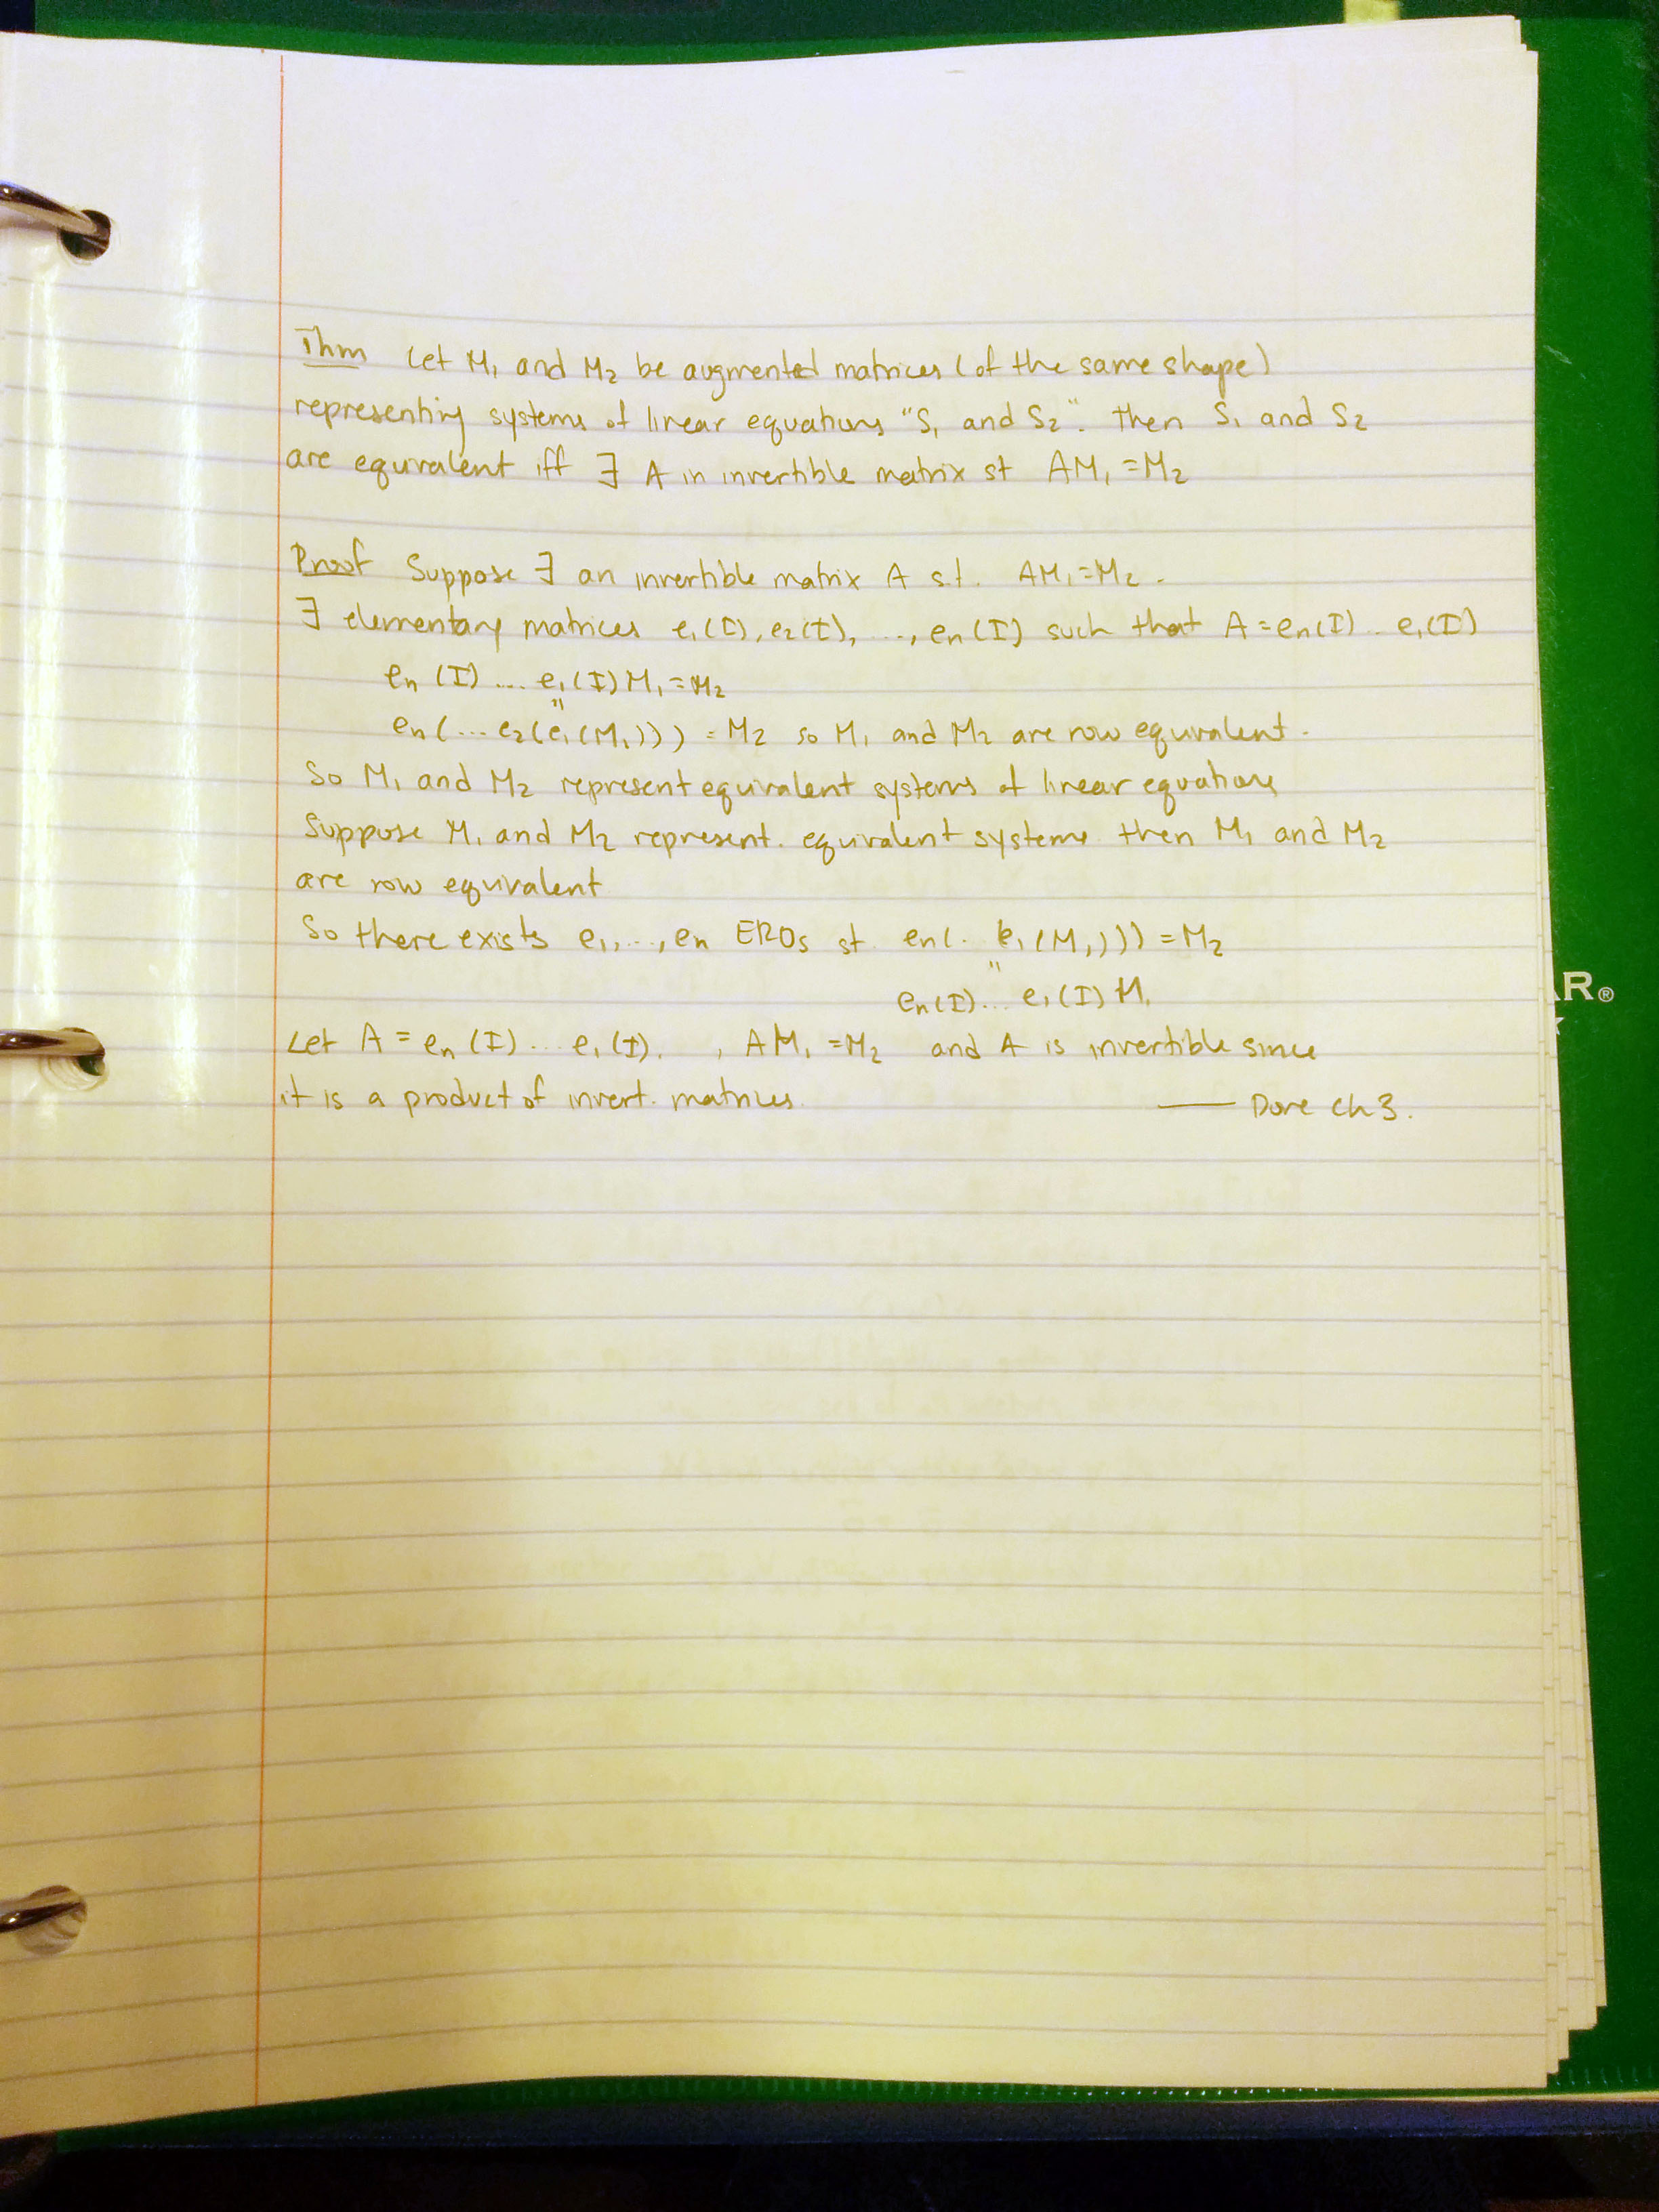 Thm Let M₁ and M₂ be augmented matrices (of the same shape)
representing systems of linear equations "S₁ and S₂". Then S₁ and S₂
are equivalent iff ∃ A in invertible matrix st AM₁ = M₂
Proof Suppose ∃ an invertible matrix A s.t. AM₁ = M₂.
∃ elementary matrices e₁(I), e₂(I), ..., eₙ(I) such that A = eₙ(I) .. e₁(I)
eₙ(I) ... e₁(I) M₁ = M₂
"
eₙ(... e₂(e₁(M₁))) = M₂ so M₁ and M₂ are row equivalent.
So M₁ and M₂ represent equivalent systems of linear equations
Suppose M₁ and M₂ represent. equivalent systems then M₁ and M₂
are row equivalent
So there exists e₁, ..., eₙ EROs st eₙ(.. e₁(M₁))) = M₂
"
eₙ(I)... e₁(I) M₁
Let A = eₙ(I) ... e₁(I). , AM₁ = M₂ and A is invertible since
it is a product of invert. matrices.
— Done Ch 3.
R®